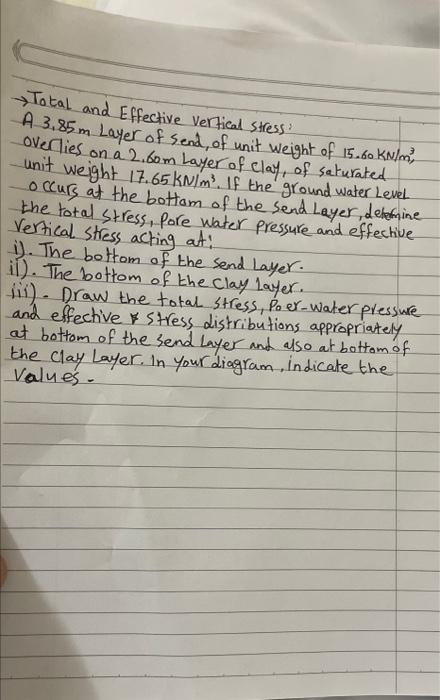 →Total and Effective vertical stress:
A 3.85m Layer of Send, of unit weight of 15.60 KN/m³,
overlies on a 2.60m Layer of Clay, of saturated
unit weight 17.65KN/m³. If the ground water Level
occurs at the bottom of the Send Layer, determine
the total stress, Pore water Pressure and effective
Vertical stress acting at:
i). The bottom of the Send Layer.
ii). The bottom of the Clay Layer.
iii). Draw the total stress, Poer-water pressure
and effective & stress distributions appropriately
at bottom of the Send Layer and also at bottom of
the clay Layer. In your diagram, indicate the
Values.